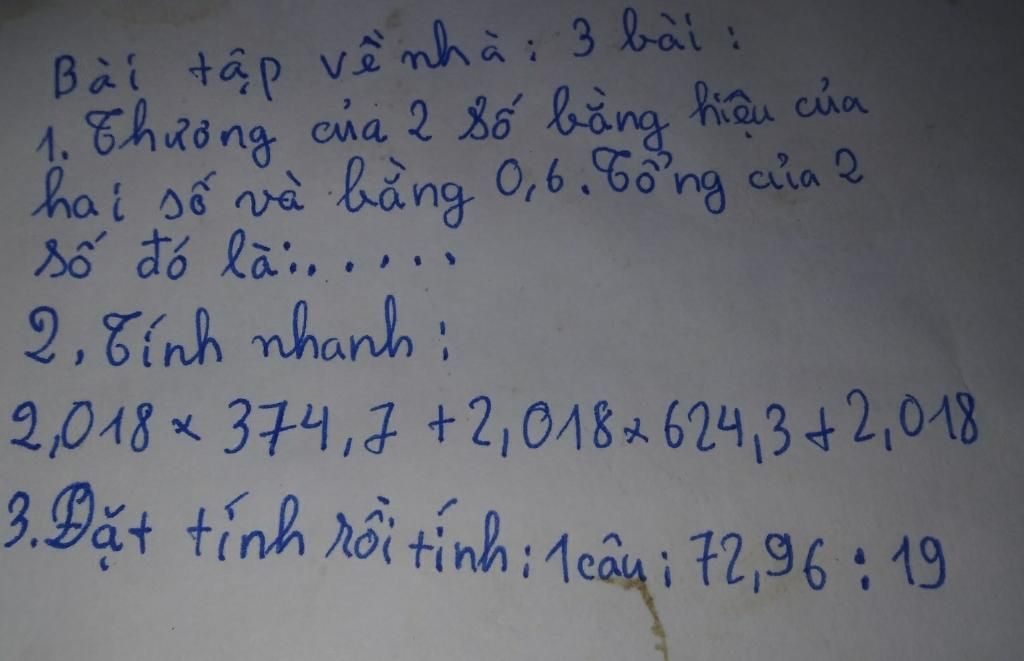 Bài tập về nhà: 3 bài:
1. Thương của 2 số bằng hiệu của
hai số và bằng 0,6. Tổng của 2
số đó là:.....
2. Tính nhanh:
2,018 × 374,7 + 2,018 × 624,3 + 2,018
3. Đặt tính rồi tính: 1 câu: 72,96 : 19